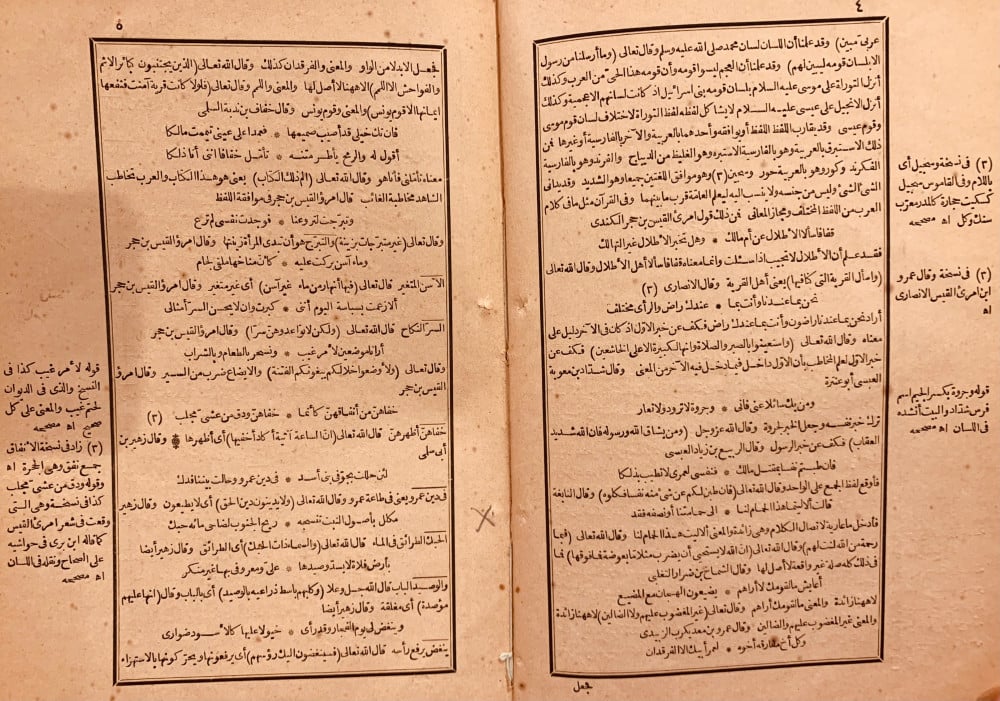 ٤
عربي مبين) وقد علمنا أن اللسان لسان محمد صلى الله عليه وسلم وقال تعالى (وما أرسلنا من رسول
الا بلسان قومه ليبين لهم) وقد علمنا أن العجم ليسوا قومه وأن قومه هذا الحى من العرب وكذلك
أنزل التوراة على موسى عليه السلام بلسان قومه بنى اسرائيل اذ كانت لسانهم الاعجمية وكذلك
أنزل الانجيل على عيسى عليه السلام لا يشاكل لفظه لفظ التوراة لاختلاف لسان قوم موسى
وقوم عيسى وقد يقارب اللفظ اللفظ أو يوافقه وأحدهما بالعربية والآخر بالفارسية أو غيرها فمن
ذلك الاستبرق بالعربية وهو بالفارسية الاستبره وهو الغليظ من الديباج والفرند وهو بالفارسية
الفكرند وكور وهو بالعربية حور وسجين (٢) وهو موافق اللغتين جميعا وهو الشديد وقد يدانى
الشئ الشئ وليس من جنسه ولا ينسب اليه ليعلم العامة قرب ما بينهما وفى القرآن مثل ما فى كلام
العرب من اللفظ المختلف ومجاز المعانى فمن ذلك قول امرئ القيس بن حجر الكندى
قفا فاسألا الأطلال عن أم مالك * وهل تخبر الأطلال غير التهالك
فقد علم أن الأطلال لا تجيب اذا سئلت وانما معناه قفا فاسألا أهل الأطلال وقال الله تعالى
(واسأل القرية التى كنا فيها) يعنى أهل القرية وقال الانصارى (٣)
نحن بما عندنا وأنت بما * عندك راض والرأى مختلف
أراد نحن بما عندنا راضون وأنت بما عندك راض فكف عن خبر الاول اذ كان فى الآخر دليل على
معناه وقال الله تعالى (واستعينوا بالصبر والصلاة وانها لكبيرة الا على الخاشعين) فكف عن
خبر الاول لعلم المخاطب بأن الاول داخل فيما دخل فيه الآخر من المعنى وقال شداد بن معوية
العبسى أبو عنترة
ومن يك سائلا عنى فانى * وجروة لا ترود ولا تعار
ترك خبر نفسه وجعل الخبر لجروة وقال الله عز وجل (ومن يشاق الله ورسوله فان الله شديد
العقاب) فكف عن خبر الرسول وقال الربيع بن زياد العبسى
فان طبتم نفسا بمقتل مالك * فنفسى لعمرى لا تطيب بذلكا
فأوقع لفظ الجمع على الواحد وقال الله تعالى (فان طبن لكم عن شئ منه نفسا فكلوه) وقال النابغة
قالت ألا ليتما هذا الحمام لنا * الى حمامتنا أو نصفه فقد
فأدخل ما عارية لاتصال الكلام وهى زائدة والمعنى ألا ليت هذا الحمام لنا وقال الله تعالى (فبما
رحمة من الله لنت لهم) وقال الله تعالى (ان الله لا يستحيى أن يضرب مثلا ما بعوضة فما فوقها) فما
فى ذلك كله صلة غير واقعة لا أصل لها وقال الشماخ بن ضرار التغلبى
أعايش ما لقومك لا أراهم * يضيعون الهجان مع المضيع
لا ههنا زائدة والمعنى ما لقومك أراهم وقال تعالى (غير المغضوب عليهم ولا الضالين) لا ههنا زائدة
والمعنى غير المغضوب عليهم والضالين وقال عمرو بن معد يكرب الزبيدى
وكل أخ مفارقه أخوه * لعمر أبيك الا الفرقدان
فجعل
(٢) فى نسخة وسجيل أى
باللام وفى القاموس سجيل
كسكيت حجارة كالمدر معرب
سنك وكل اه مصححه
(٣) فى نسخة وقال عمرو
ابن امرئ القيس الانصارى
اه
قوله وجروة بكسر الجيم اسم
فرس شداد والبيت أنشده
فى اللسان اه مصححه
٥
فجعل الا بدلا من الواو والمعنى والفرقدان كذلك وقال الله تعالى (الذين يجتنبون كبائر الاثم
والفواحش الا اللمم) الا ههنا لا أصل لها والمعنى واللمم وقال تعالى (فلولا كانت قرية آمنت فنفعها
ايمانها الا قوم يونس) والمعنى وقوم يونس وقال خفاف بن ندبة السلمى
فان تك خيلى قد أصيب صميمها * فعمدا على عينى تيممت مالكا
أقول له والرمح يأطر متنه * تأمل خفافا اننى أنا ذلكا
معناه تأملنى فأنا هو وقال الله تعالى (الم ذلك الكتاب) يعنى هو هذا الكتاب والعرب تخاطب
الشاهد مخاطبة الغائب قال امرؤ القيس بن حجر فى موافقة اللفظ
وتبرجت لتروعنا * فوجدت نفسى لم ترع
وقال تعالى (غير متبرجات بزينة) والتبرج هو أن تبدى المرأة زينتها وقال امرؤ القيس بن حجر
وماء آسن بركت عليه * كأن مناخها ملقى لجام
الآسن المتغير قال تعالى (فيها أنهار من ماء غير آسن) أى غير متغير وقال امرؤ القيس بن حجر
ألا زعمت بسباسة اليوم أننى * كبرت وان لا يحسن السر أمثالى
السر النكاح قال الله تعالى (ولكن لا تواعدوهن سرا) وقال امرؤ القيس بن حجر
أرانا موضعين لأمر غيب * ونسحر بالطعام وبالشراب
وقال تعالى (ولأوضعوا خلالكم يبغونكم الفتنة) والايضاع ضرب من السير وقال امرؤ
القيس بن حجر
خفاهن من أنفاقهن كأنما * خفاهن ودق من عشى مجلب (٣)
خفاهن أظهرهن قال الله تعالى (ان الساعة آتية أكاد أخفيها) أى أظهرها * وقال زهير بن
أبى سلمى
لئن حللت بجو فى بنى أسد * فى دين عمرو وحالت بيننا فدك
فى دين عمرو يعنى فى طاعة عمرو وقال الله تعالى (ولا يدينون دين الحق) أى لا يطيعون وقال زهير
مكلل بأصول النبت تنسجه * ريح الجنوب لضاحى مائه حبك
الحبك الطرائق فى الماء قال الله تعالى (والسماء ذات الحبك) أى الطرائق وقال زهير أيضا
بأرض فلاة لا يسد وصيدها * على ومعروفى بها غير منكر
والوصيد الباب قال الله جل وعلا (وكلبهم باسط ذراعيه بالوصيد) أى بالباب وقال (انها عليهم
مؤصدة) أى مغلقة وقال زهير أيضا
وينغض لى يوم الفجار وقد رأى * خيولا عليها كالأسود ضوارى
ينغض يرفع رأسه قال الله تعالى (فسينغضون اليك رؤسهم) أى يرفعونها ويحركونها بالاستهزاء
قوله لأمر غيب كذا فى
النسخ والذى فى الديوان
لحتم غيب والمعنى على كل
صحيح اه مصححه
(٣) زاد فى نسخة الانفاق
جمع نفق وهى الجحرة اه
وقوله ودق من عشى مجلب
كذا فى نسخة وهى التى
وقعت فى شعر امرئ القيس
كما قاله ابن برى فى حواشيه
على الصحاح ونقله فى اللسان
اه مصححه